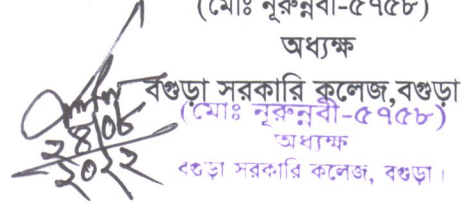 (মোঃ নূরুন্নবী-৫৭৫৮)
অধ্যক্ষ
বগুড়া সরকারি কলেজ,বগুড়া
(মোঃ নূরুন্নবী-৫৭৫৮)
অধ্যক্ষ
বগুড়া সরকারি কলেজ, বগুড়া।
২৪/০৮
২০২২